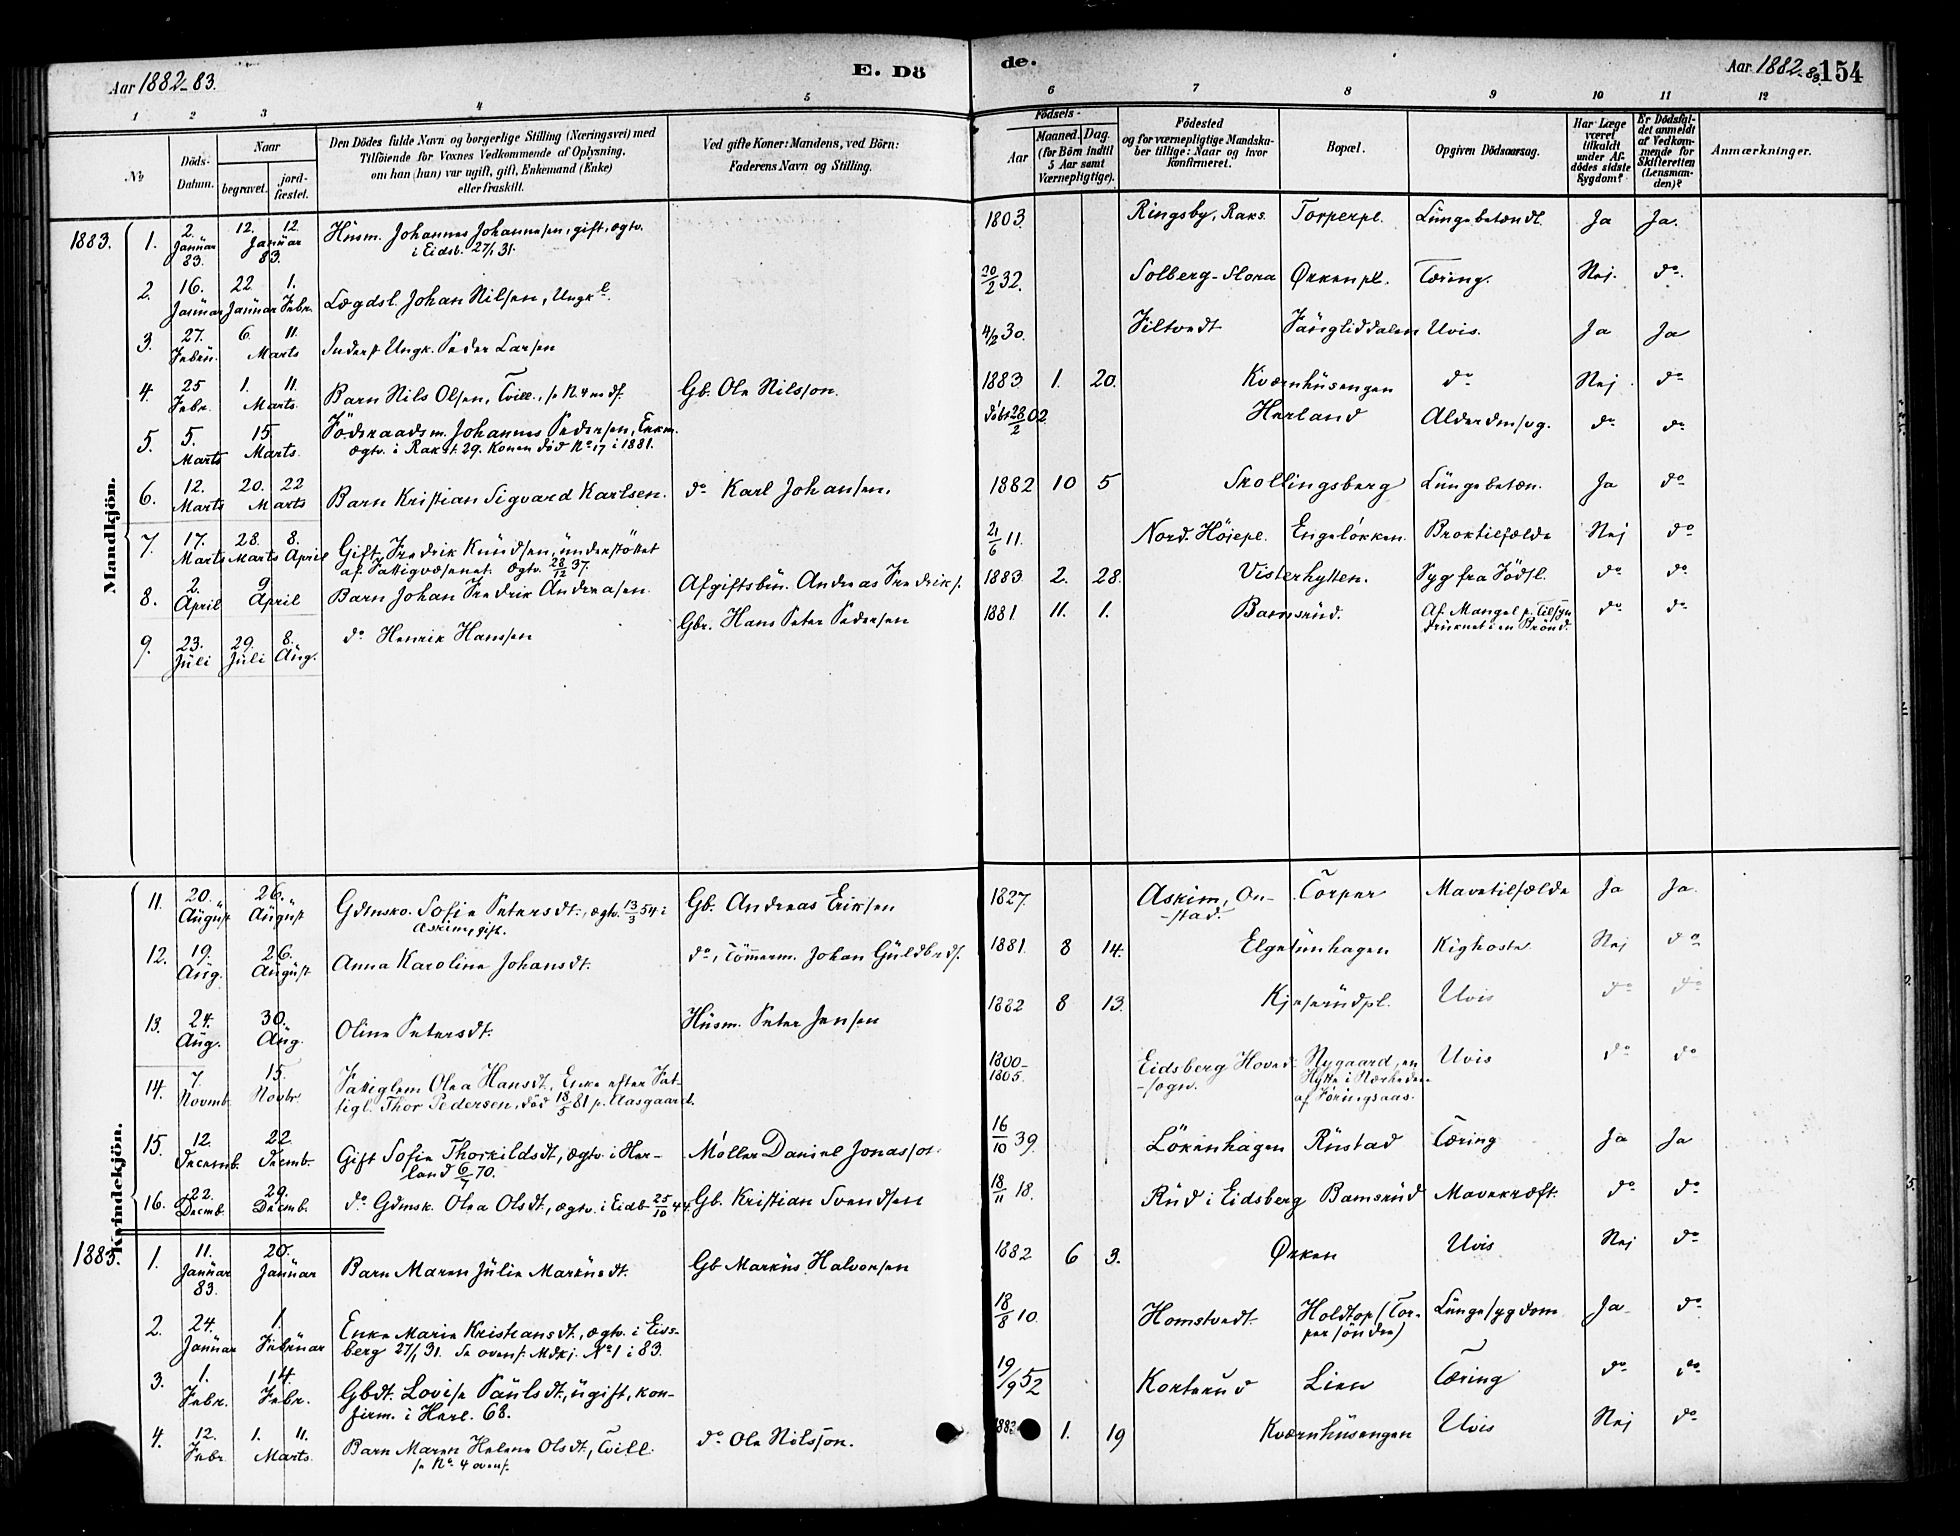 Aar 1882-83.
E. Dö
de.
Aar 1882-83. 154
1 2 3 4 5 6 7 8 9 10 11 12
No
Döds-Datum.
Naar
begravet.
jord-fæstet.
Den Dödes fulde Navn og borgerlige Stilling (Næringsvei) med
Tilföiende for Voxnes Vedkommende af Oplysning,
om han (hun) var ugift, gift, Enkemand (Enke)
eller fraskilt.
Ved gifte Koner: Mandens, ved Börn:
Faderens Navn og Stilling.
Födsels-
Aar
Maaned. Dag.
(for Börn indtil
5 Aar samt
Værnepligtige).
Födested
og for værnepligtige Mandska-
ber tillige: Naar og hvor
konfirmeret.
Bopæl.
Opgiven Dödsaarsag.
Har Læge
været
tilkaldt
under Af-
dödes sidste
Sygdom?
Er Dödsfal-
det anmeldt
af Vedkom-
mende for
Skifteretten
(Lensman-
den)?
Anmærkninger.
Mandkjön.
1883. 1. 2. Januar 83. 12. 12. Januar 83. Husm. Johannes Johannesen, gift, ægtv.
i Eidsb. 27/1 31.
1803 Ringsby, Raks. Torperpl. Lungebetændl. Ja Ja.
2. 16. Januar 22 Januar 1. Febr. Lægdsl. Johan Nilsen, Ungk. 20/2 32. Solberg-Stora Ørkenpl. Tæring. Nej. do.
3. 27. Febru. 6. 11. Marts Inderst Ungk. Peder Larsen 4/2 30. Viltvedt Uvis. Ja Ja
4. 25 Febr. 1. 11. Marts. Barn Nils Olsen, Tvill., se N. 4 nedf. Gb. Ole Nilsson. 1883 1. 20. Kværnhusengen do Nej. do
5. 5. Marts 15. Marts. Föderaadsm. Johannes Pedersen, Enkm.
ægtv. i Rakst. 29. Konen död No. 17 i 1881.
döbt 28/2 02 Herland Alderdomssvg. do do
6. 12. Marts 20. 22 Marts Barn Kristian Sigvard Karlsen. do Karl Johansen. 1882 10 5 Skollingsberg Lungebetæn. Ja do
7. 17. Marts 28. Marts 8. April Gift Fredrik Knudsen, understöttet
af Fattigvæsenet. ægtv. 28/12 37.
21/6 11. Nord. Höiepl. Engelökken. Broktilfælde Nej do
8. 2. April 9 April Barn Johan Fredrik Andreasen. Afgiftsbru. Andreas Fredriks. 1883 2. 28. Visterhytten. Syg fra Födsl. do do
9. 23. Juli 29. Juli 8. Aug. do Henrik Hanssen Gbr. Hans Peter Pedersen 1881 11. 1. Bamsrud. Af Mangel p. Tilsyn
druknet i en Brönd. do do
Kvindekjön.
11. 20. August 26. August Gdmsko. Sofie Petersdt., ægtv. 13/3 54 i
Askim, gift.
Gb. Andreas Eriksen 1827. Askim, On-
-stad. Torper Mavetilfælde Ja Ja.
12. 19. Aug. 26. August Anna Karoline Johansdt. do, Tömmerm. Johan Guldbrds. 1881 8 14. Elgetunhagen Kighoste Nej do
13. 24. Aug. 30. Aug. Oline Petersdt. Husm. Peter Jensen 1882 8 13. Kjeserudpl. Uvis do do
14. 7. Novmb. 15. Novbr. Fattiglem Olea Hansdt., Enke efter Fat-
tigl. Thor Pedersen, död 18/5 81 p. Aasgaard.
1800-
1805. Eidsberg Hoved-
-sogn. Nygaard, en
Hytte i Nærheden
af Jöringsaas. Uvis do do
15. 12. Decemb. 22. Decmb. Gift Sofie Thorkildsdt., ægtv. i Her-
land 6/7 70.
Möller Daniel Jonassen. 16/10 39. Lökenhagen Rustad Tæring Ja Ja
16. 22. Decmb. 29. Decmb. do Gdmsk. Olea Olsdt., ægtv. i Eidb 25/10 44. Gb. Kristian Svendsen 18/11 18. Rud i Eidsberg Bamsrud Mavekræft. do do
1883. 1. 11. Januar 83. 20. Januar Barn Maren Julie Markusdt. Gb Markus Halvorsen 1882 6 3. Ørken Uvis Nej do
2. 24. Januar 1. Februar Enke Marie Kristiansdt., ægtv. i Eids-
berg 27/1 31. Se ovenf. Mdkj. No 1 i 83.
18/8 10. Homstvedt Holdtop (Tor-
per söndre) Lungesygdom Ja do
3. 1. Febr. 14. Febr. Gbdt. Lovise Paulsdt., ugift, kon-
firm. i Herl. 68.
19/9 52 Korterud Lien Tæring do do
4. 12. Febr. 1. 11. Marts. Barn Maren Helene Olsdt, Tvill.
se No 4 ovenf.
do Ole Nilsson. 1883 1. 19 Kværnhusengen Uvis Nej do